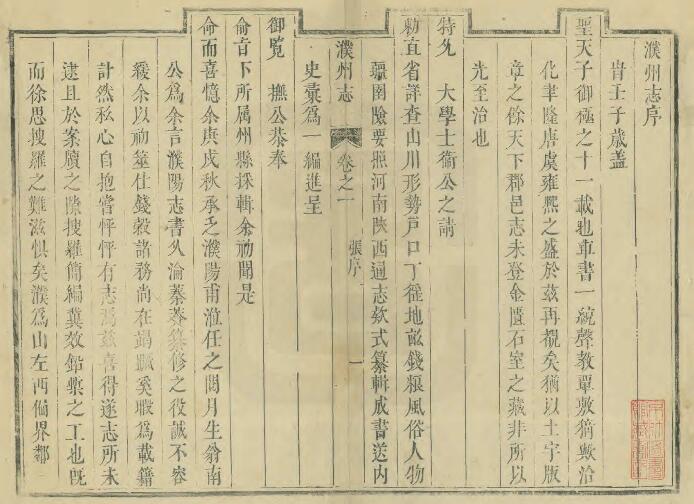 濮州志序
旹壬子歲蓋
聖天子御極之十一載也車書一統聲教單敷猗歟洽
化聿隆唐虞雍熙之盛於茲再覩矣猶以土宇版
章之餘天下郡邑志未登金匱石室之藏非所以
光至治也
特允 大學士衞公之請
勅直省詳查山川形勢戶口丁徭地畝錢糧風俗人物
疆圉險要照河南陜西通志欵式纂輯成書送內
濮州志 卷之一 張序 一
史彙爲一編進呈
御覽 撫公恭奉
俞旨下所属州縣採輯余初聞是
命而喜憶余庚戍秋承乏濮陽甫涖任之閱月生翁南
公爲余言濮陽志書久淪蓁莽纂修之役誠不容
緩余以初筮仕錢穀諸務尚在蹋蹶奚暇爲載籍
計然私心自抱嘗怦怦有志焉茲喜得遂志所未
逮且於案牘之隙搜羅簡編冀效鉛槧之工也旣
而徐思搜羅之難滋惧矣濮爲山左西偏界鄰